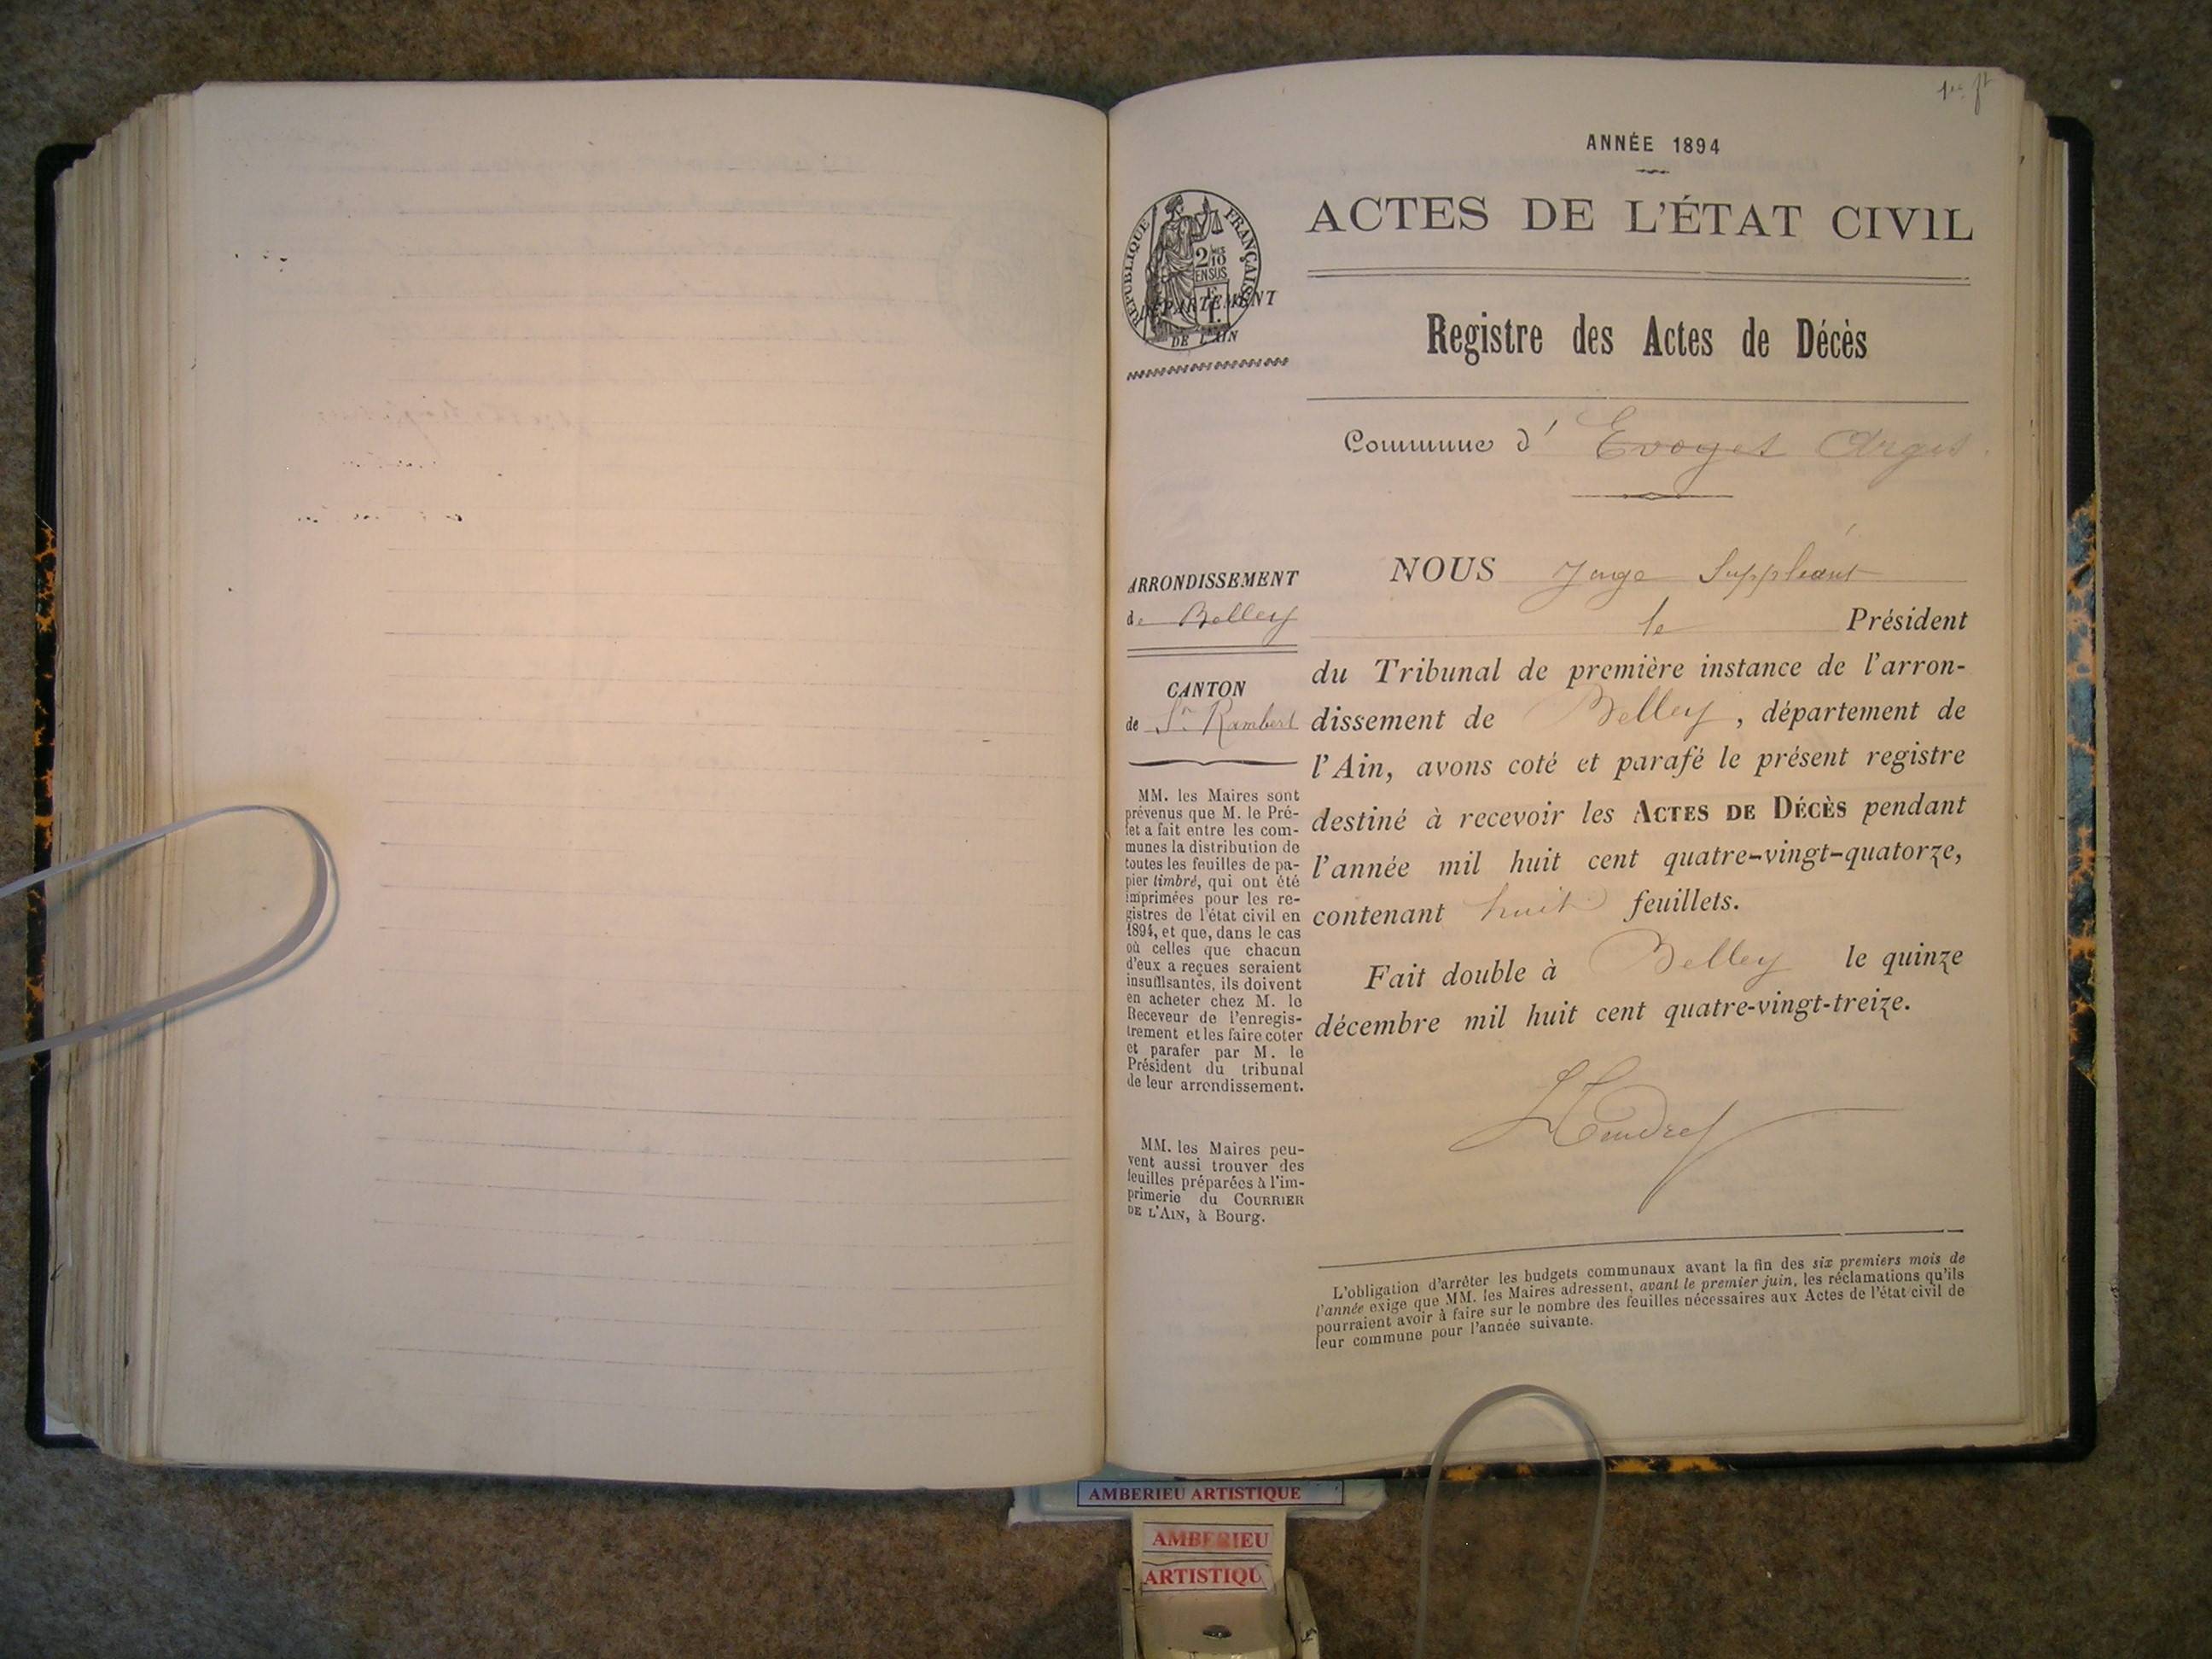 1er ft
ANNÉE 1894
ACTES DE L'ÉTAT CIVIL
RÉPUBLIQUE FRANÇAISE
2/10 EN SUS
DÉPARTEMENT
DE L'AIN
Registre des Actes de Décès
Commune d' Evoges Argis
NOUS Juge Suppléant
le Président
du Tribunal de première instance de l'arron-
dissement de Belley, département de
l'Ain, avons coté et parafé le présent registre
destiné à recevoir les ACTES DE DÉCÈS pendant
l'année mil huit cent quatre-vingt-quatorze,
contenant huit feuillets.
Fait double à Belley le quinze
décembre mil huit cent quatre-vingt-treize.
ARRONDISSEMENT
de Belley
CANTON
de St Rambert
MM. les Maires sont
prévenus que M. le Pré-
fet a fait entre les com-
munes la distribution de
toutes les feuilles de pa-
pier timbré, qui ont été
imprimées pour les re-
gistres de l'état civil en
1894, et que, dans le cas
où celles que chacun
d'eux a reçues seraient
insuffisantes, ils doivent
en acheter chez M. le
Receveur de l'enregis-
trement et les faire coter
et parafer par M. le
Président du tribunal
de leur arrondissement.
MM. les Maires peu-
vent aussi trouver des
feuilles préparées à l'im-
primerie du COURRIER
DE L'AIN, à Bourg.
L'obligation d'arrêter les budgets communaux avant la fin des six premiers mois de
l'année exige que MM. les Maires adressent, avant le premier juin, les réclamations qu'ils
pourraient avoir à faire sur le nombre des feuilles nécessaires aux Actes de l'état civil de
leur commune pour l'année suivante.
AMBERIEU ARTISTIQUE
AMBERIEU
ARTISTIQU